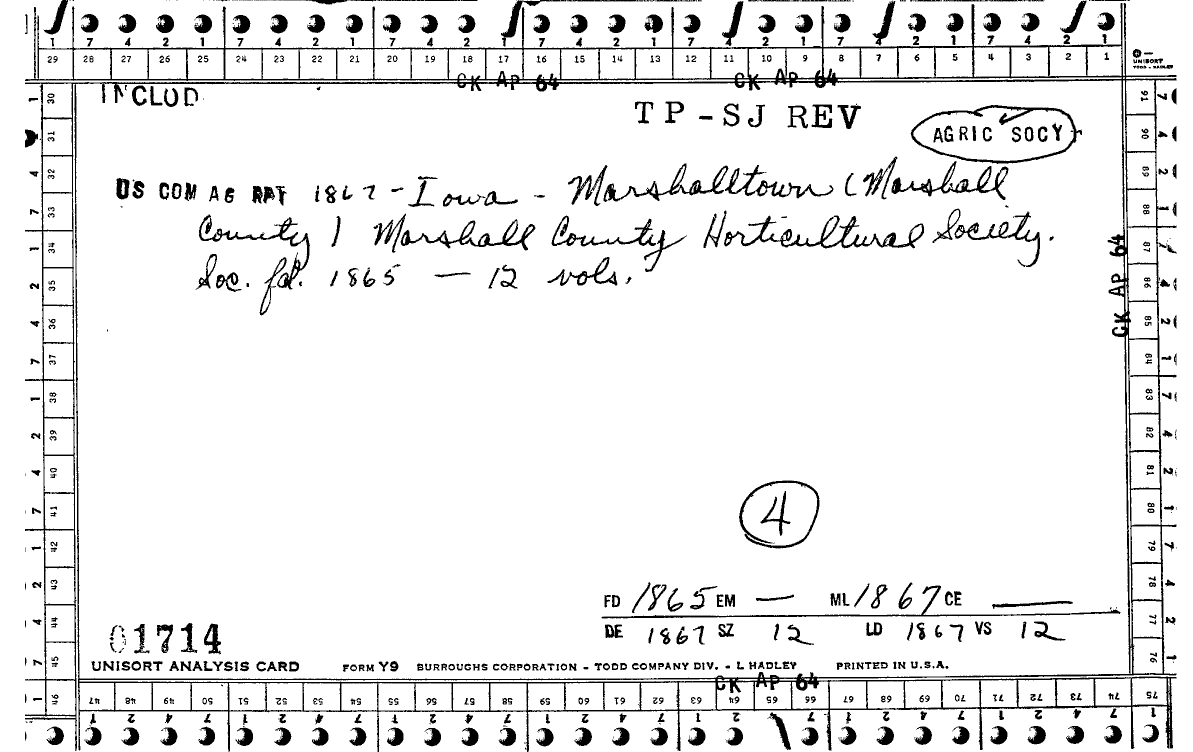 1 7 4 2 1 7 4 2 1 7 4 2 1 7 4 2 1 7 4 2 1 7 4 2 1 7 4 2 1
29 28 27 26 25 24 23 22 21 20 19 18 17 16 15 14 13 12 11 10 9 8 7 6 5 4 3 2 1
UNISORT
TODD - HADLEY
CK AP 64 CK AP 64
INCLUD
TP-SJ REV
AGRIC SOCY
US COM AG RPT 1867 - Iowa - Marshalltown (Marshall
County) Marshall County Horticultural Society.
Soc. fd. 1865 — 12 vols.
CK AP 64
4
FD 1865 EM — ML 1867 CE —
DE 1867 SZ 12 LD 1867 VS 12
01714
UNISORT ANALYSIS CARD FORM Y9 BURROUGHS CORPORATION - TODD COMPANY DIV. - L HADLEY PRINTED IN U.S.A.
CK AP 64
30 31 32 33 34 35 36 37 38 39 40 41 42 43 44 45 46
47 48 49 50 51 52 53 54 55 56 57 58 59 60 61 62 63 64 65 66 67 68 69 70 71 72 73 74 75
91 90 89 88 87 86 85 84 83 82 81 80 79 78 77 76